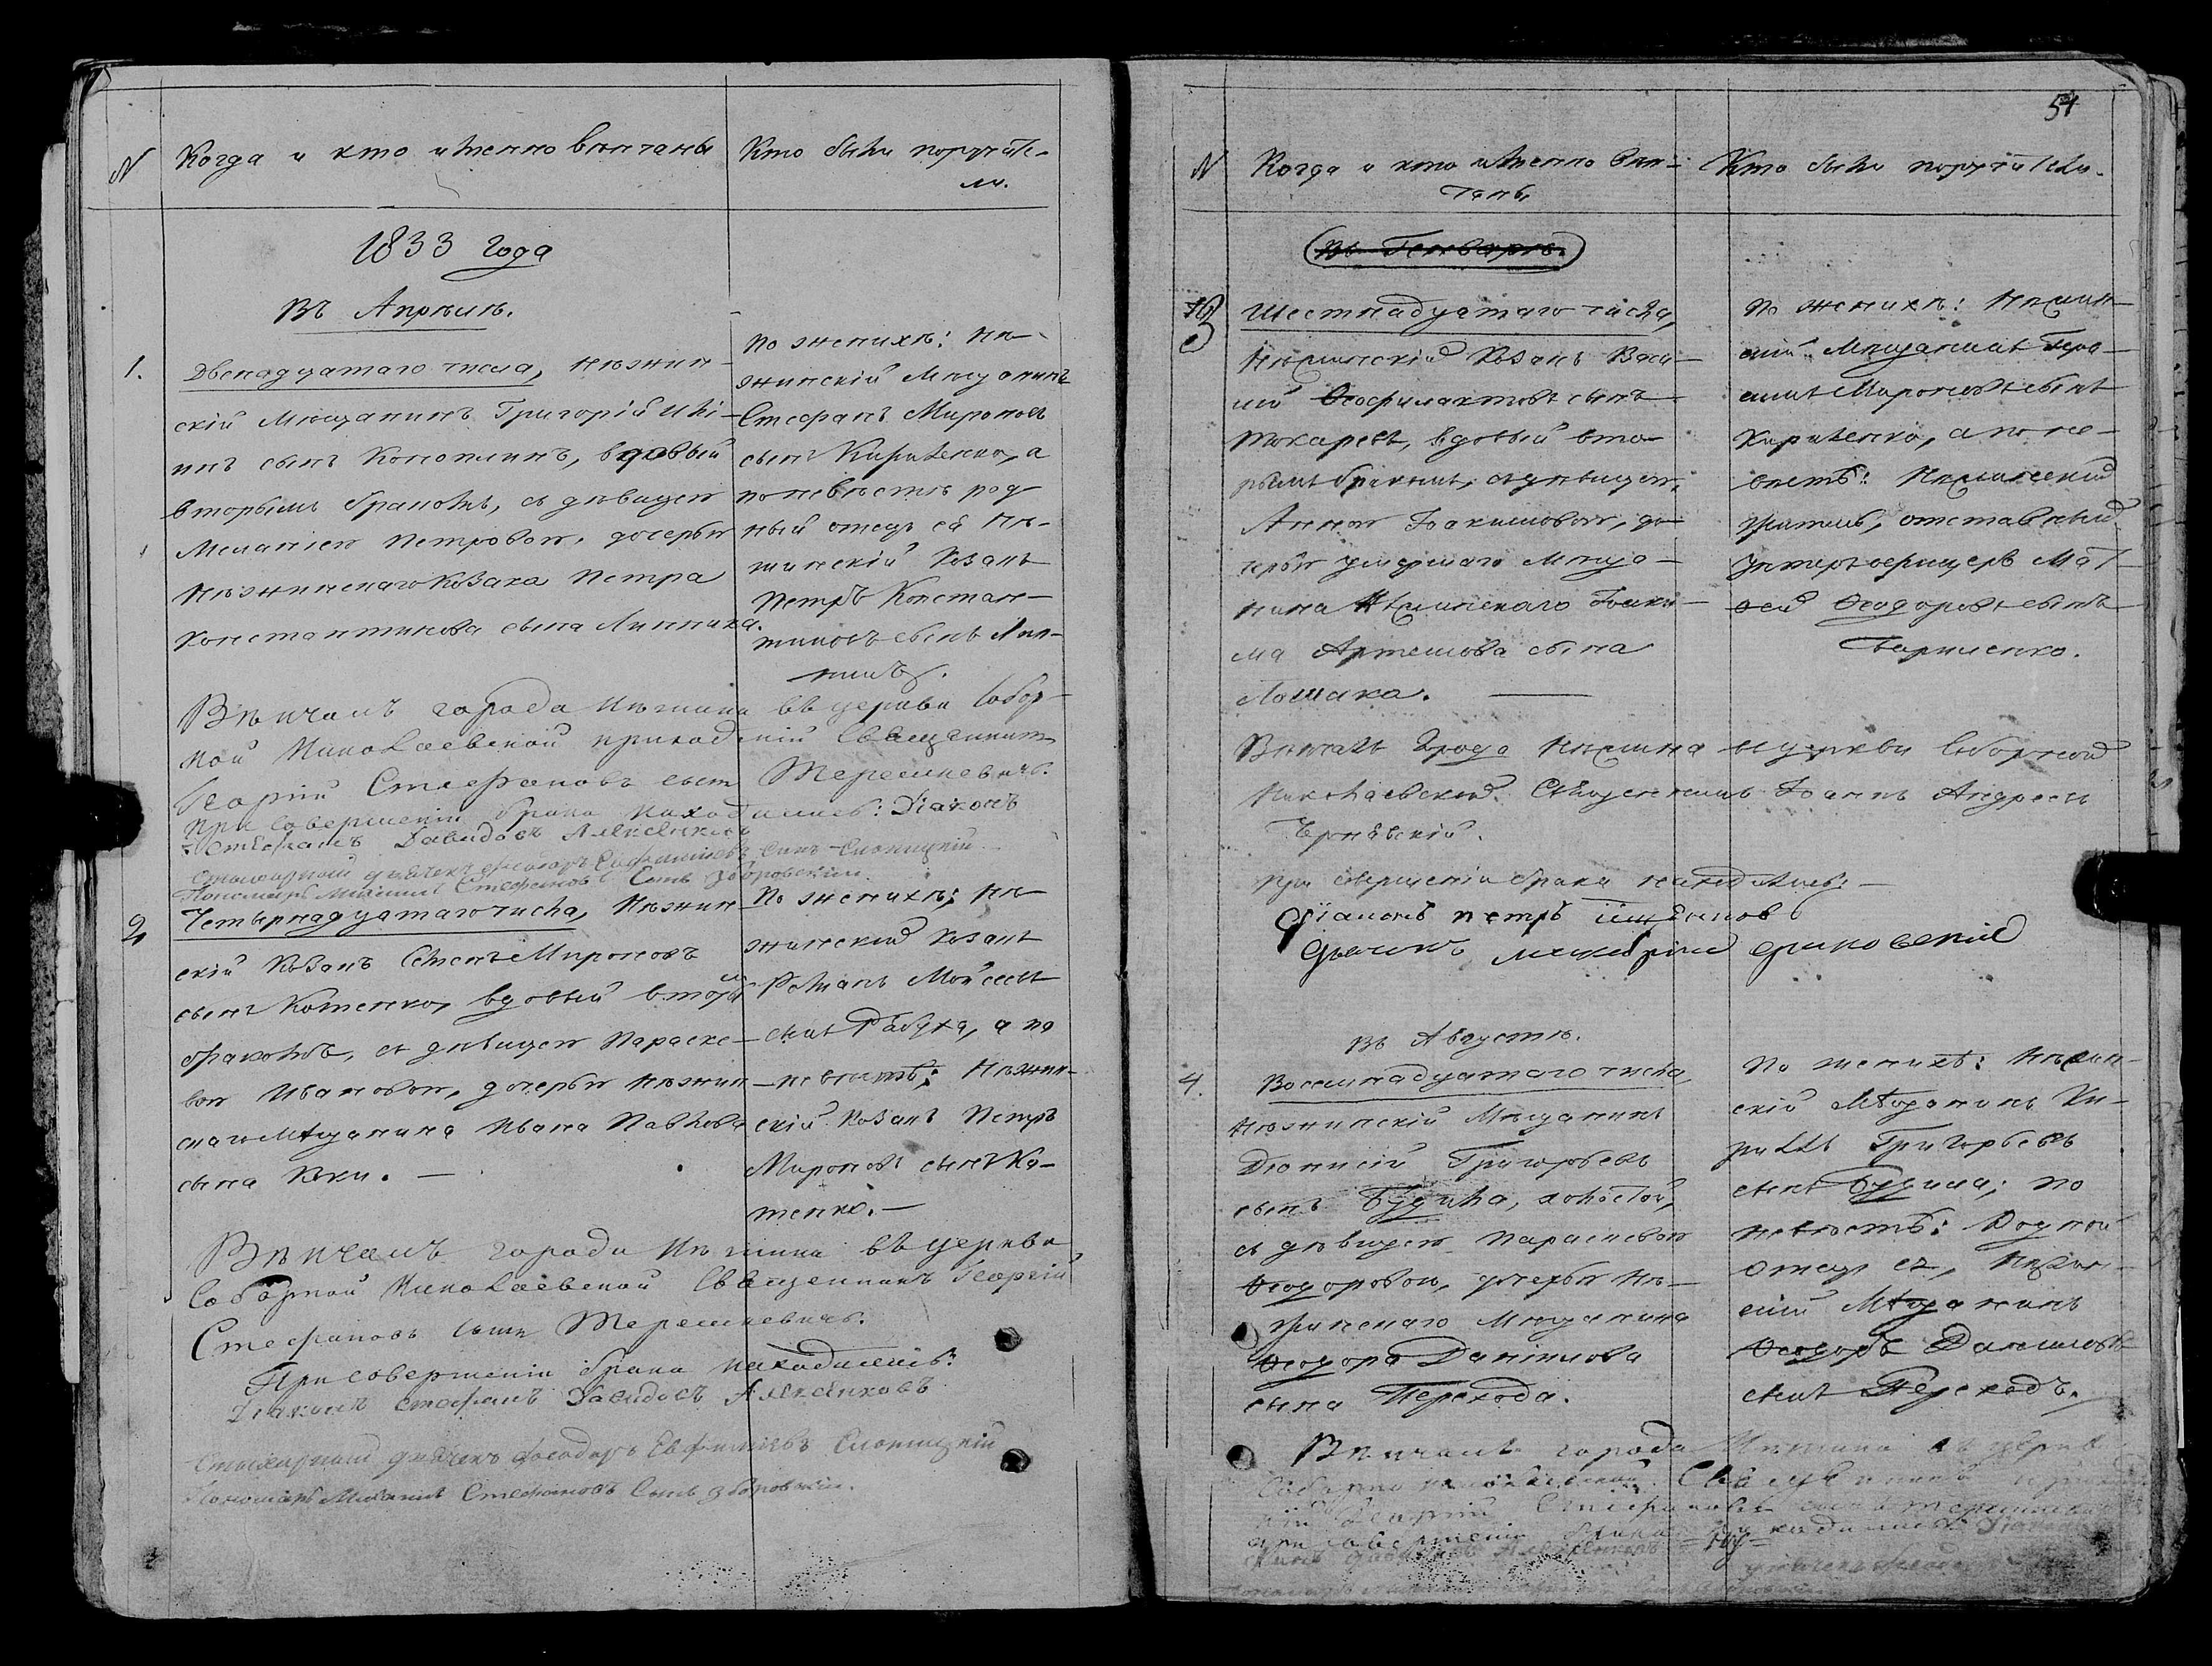 N
Когда и кто именно венчаны
Кто были поручите-
ли.
1833 года
Въ Апрѣлѣ.
1.
Двенадцатаго числа, Нѣжин-
скій Мѣщанинъ Григорій Илі-
инъ сынъ Конотлинъ, вдовый
вторымъ бракомъ, съ дѣвицею
Меланіею Петровою, дочерью
Нѣжинскаго Козака Петра
Константинова сына Линника.
По женихѣ: Нѣ-
жинскій Мѣщанинъ
Стефанъ Мироновъ
сынъ Кириленко, а
по невѣстѣ род-
ный отецъ её Нѣ-
жинскій Козакъ
Петръ Констан-
тиновъ сынъ Лин-
никъ.
Вѣнчалъ города Нѣжина въ церкви Собор-
ной Николаевской приходскій Священникъ
Георгій Стефановъ сынъ Терешкевичъ.
При совершеніи брака находились: Діаконъ
Стефанъ Давидовъ
Стихарный дьячекъ Феодоръ Евфиміевъ сынъ
Пономарь Михаилъ Стефановъ Сынъ Зборовскій.
2
Четырнадцатаго числа, Нѣжин-
скій Козакъ Семенъ Мироновъ
сынъ Котенко, вдовый вторы
мъ
бракомъ, съ дѣвицею Параске-
вою Ивановою, дочерью Нѣжин
скаго Мѣщанина Ивана Павлова
сына Коки. —
По женихѣ; Нѣ
жинскій Козакъ
Романъ Мойсеевъ
сынъ Рабуха, а по
невѣстѣ; Нѣжин-
скій Козакъ Петръ
Мироновъ сынъ Ко-
тенко. —
Вѣнчалъ города Нѣжина въ церкви
Соборной Николаевской Священникъ Георгій
Стефановъ сынъ Терешкевичъ.
При совершеніи брака находились:
Діаконъ Стефанъ Давидовъ
Стихарный дьячекъ Феодоръ Евфиміевъ
Пономарь Михаилъ Стефановъ Сынъ Зборовскій.
54
N
Когда и кто именно вѣн-
чанъ.
Кто были поручители.
Въ Генварѣ.
3
Шестнадцатаго числа,
Нѣжинскій Козакъ Васи-
лій Ѳеофилактовъ сынъ
Токаревъ, вдовый вто-
рымъ бракомъ, съ дѣвицею
Анною Іоакимовою, до-
черью умершаго Мѣща-
нина Нѣжинскаго Іоаки-
ма Артемова сына
Лошака. —
По женихѣ: Нѣжин-
скій Мѣщанинъ Гера-
симъ Мироновъ сынъ
Кириленко, а по не-
вѣстѣ: Нѣжинский
житель, отставный
унтеръ офицеръ Мат-
ѳей Ѳеодоровъ сынъ
Вѣнчалъ Града Нѣжина въ церкви Соборной
Николаевской. Священникъ Іоаннъ Андреевъ
При совершеніи брака находились: —
Діаконъ Петръ
Дьячикъ
Въ Августѣ.
4.
Восемнадцатаго числа,
Нѣжинскій Мѣщанинъ
Діонисій Григорьевъ
сынъ Будила, холостой,
съ дѣвицею Параскевою
Ѳеодоровою, дочерью Нѣ-
жинскаго Мѣщанина
Ѳеодора Даніилова
сына Перехода.
По женихѣ: Нѣжин-
скій Мѣщанинъ Ки-
риллъ Григорьевъ
сынъ Будила; по
невѣстѣ: Родной
отецъ ея, Нѣжин-
скій Мѣщанинъ
Ѳеодоръ Даниловъ
сынъ Переходъ.
Вѣнчалъ города Нѣжина въ церкви
Соборно Николаевской Священникъ
Георгій Стефановъ сынъ
при совершеніи брака находились